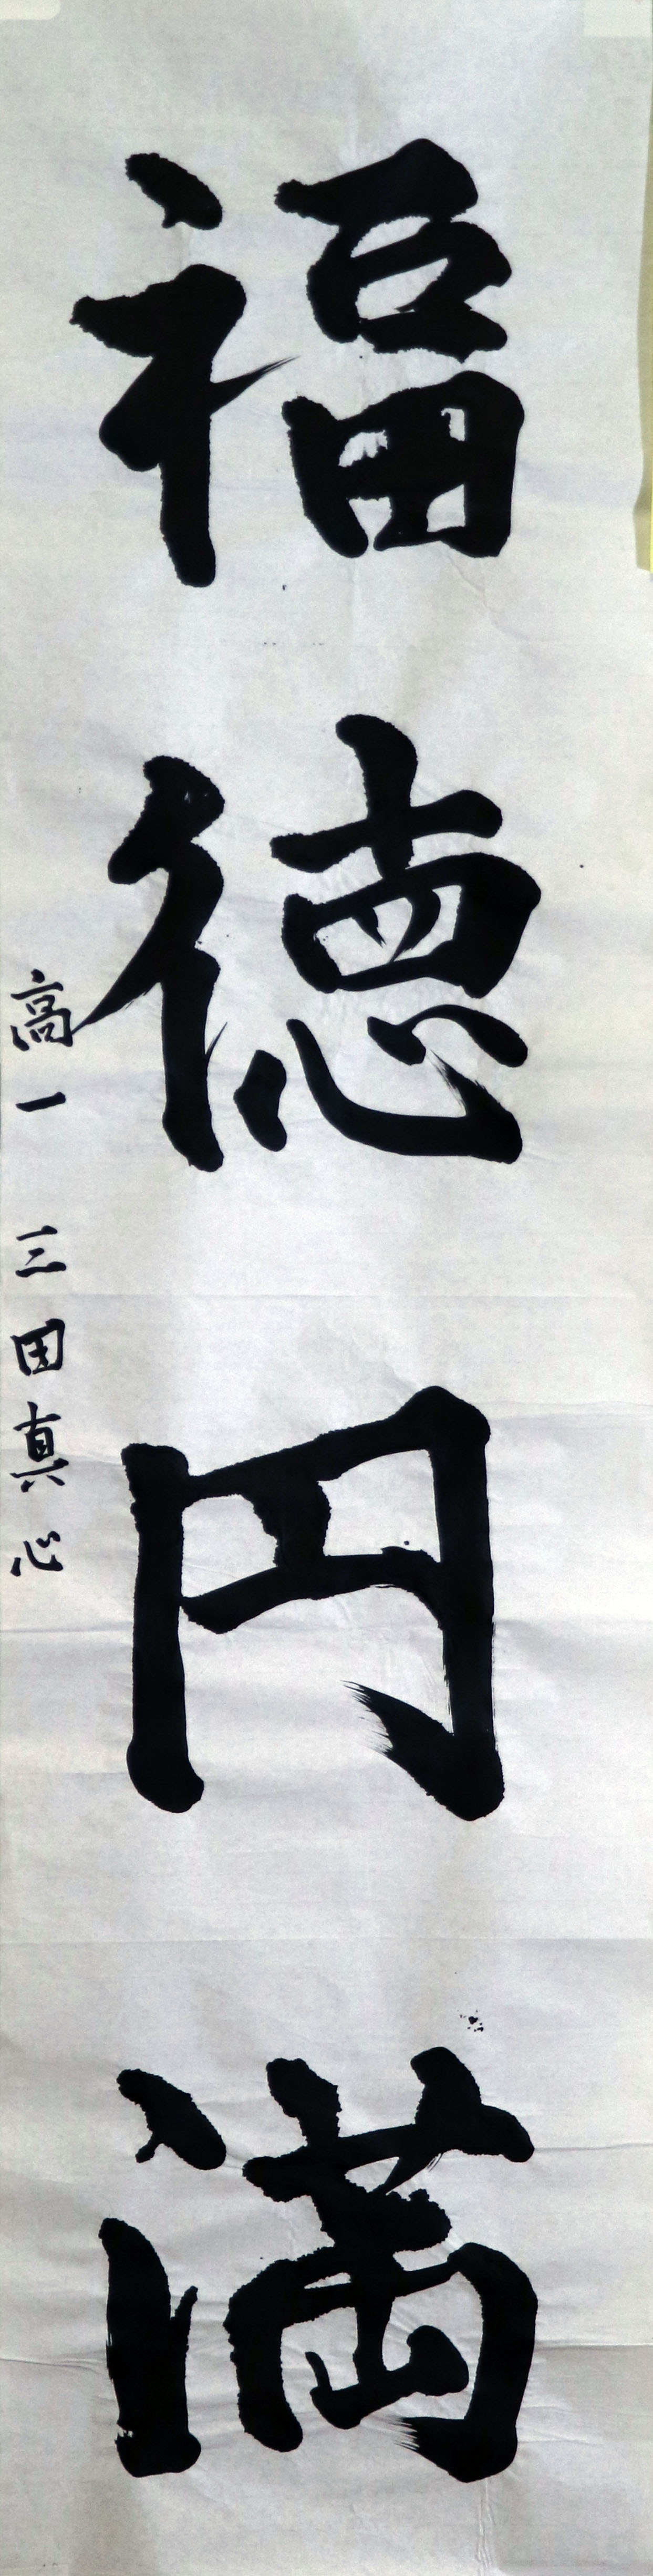 福德円満
高一 三田真心